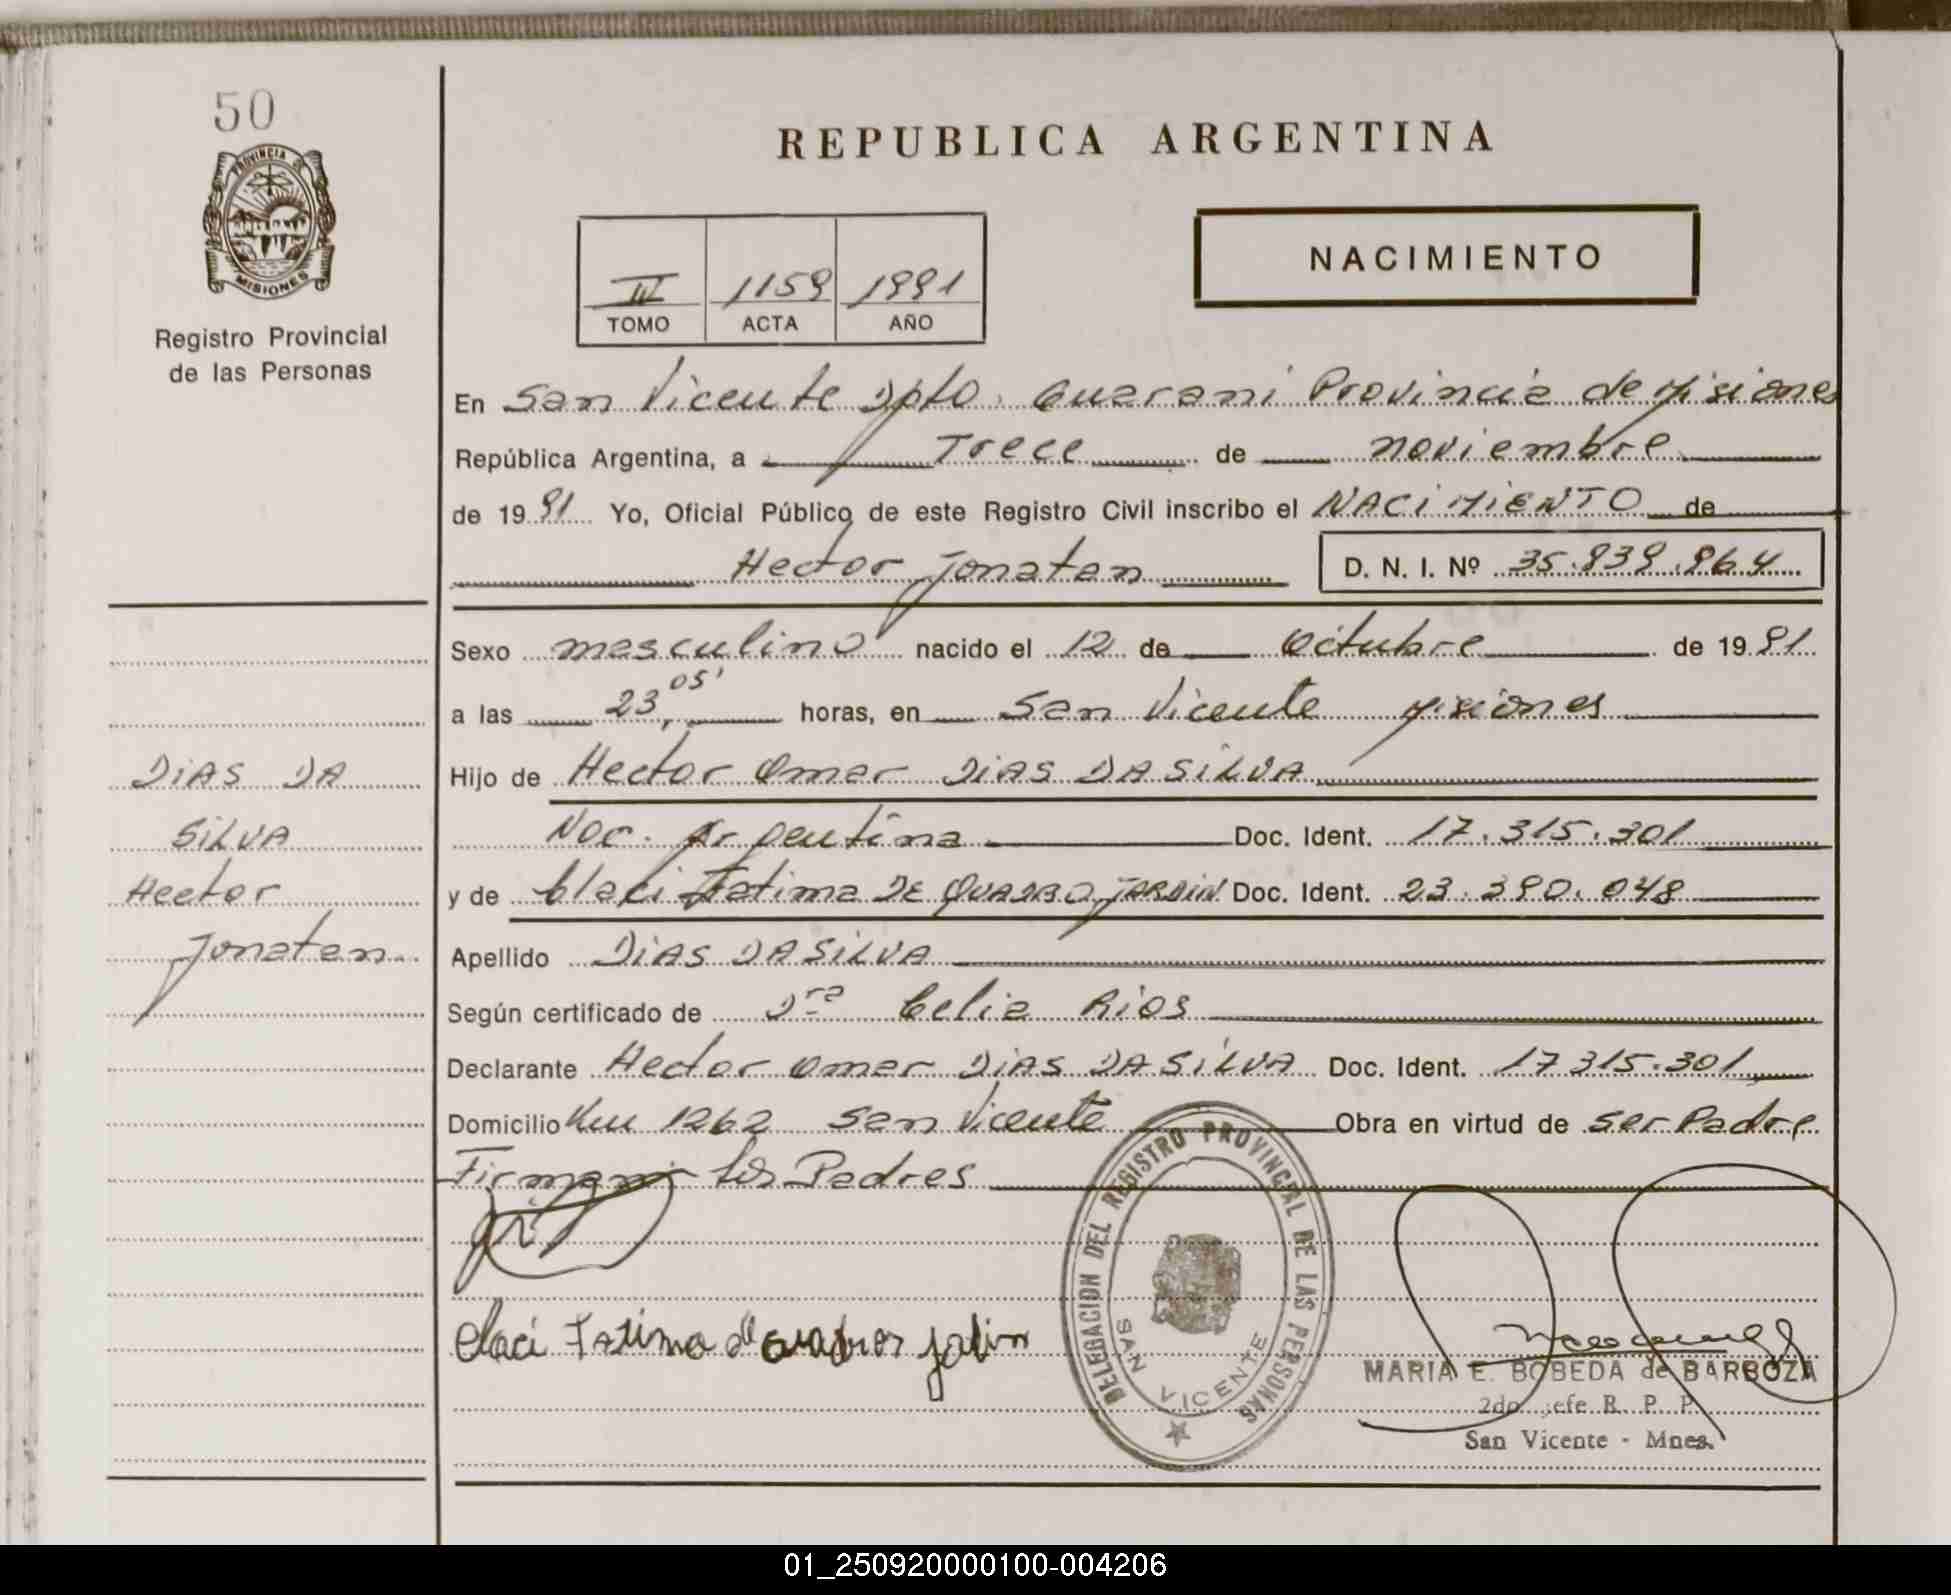 50
PROVINCIA DE
MISIONES
Registro Provincial
de las Personas
REPUBLICA ARGENTINA
NACIMIENTO
IV 1159 1991
TOMO ACTA AÑO
En San Vicente Dpto. Guarani Provincia de Misiones
República Argentina, a Trece de noviembre
de 1991 Yo, Oficial Público de este Registro Civil inscribo el NACIMIENTO de
Hector Jonatan D. N. I. Nº 35.839.864
Sexo masculino nacido el 12 de Octubre de 1991
a las 23,05' horas, en San Vicente Misiones
Hijo de Hector Omar DIAS DA SILVA
Nac. Argentina Doc. Ident. 17.315.301
y de Claci Fatima DE QUADRO JARDIN Doc. Ident. 23.390.048
Apellido DIAS DA SILVA
Según certificado de Dra Celia Rios
Declarante Hector Omar DIAS DA SILVA Doc. Ident. 17315.301
Domicilio Km 1262 San Vicente Obra en virtud de ser Padre
Firman los Padres
DIAS DA
SILVA
Hector
Jonatan
Claci Fatima de
DELEGACION DEL REGISTRO PROVINCIAL DE LAS PERSONAS
SAN VICENTE
MARIA E. BOBEDA de BARBOZA
2do. jefe R. P. P.
San Vicente - Mnes.
01_250920000100-004206